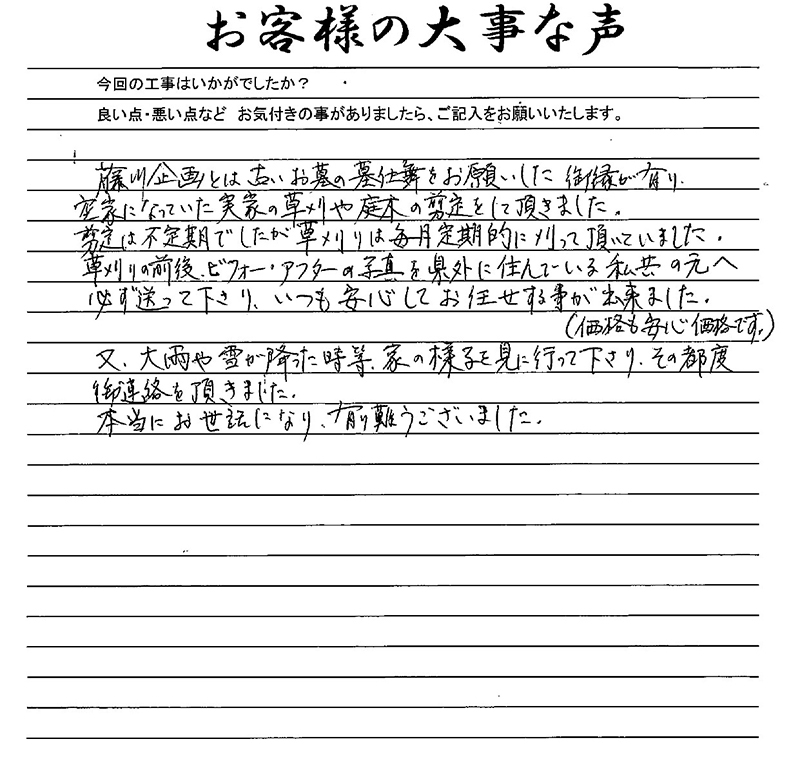 お客様の大事な声
今回の工事はいかがでしたか？
良い点・悪い点など お気付きの事がありましたら、ご記入をお願いいたします。
藤川企画とは古いお墓の墓仕舞をお願いした御縁が有り、
空家になっていた実家の草刈や庭木の剪定をして頂きました。
剪定は不定期でしたが草刈りは毎月定期的に刈って頂いていました。
草刈りの前後、ビフォー・アフターの写真を県外に住んでいる私共の元へ
必ず送って下さり、いつも安心してお任せする事が出来ました。
（価格も安心価格です。）
又、大雨や雪が降った時等、家の様子を見に行って下さり、その都度
御連絡を頂きました。
本当にお世話になり、有り難うございました。